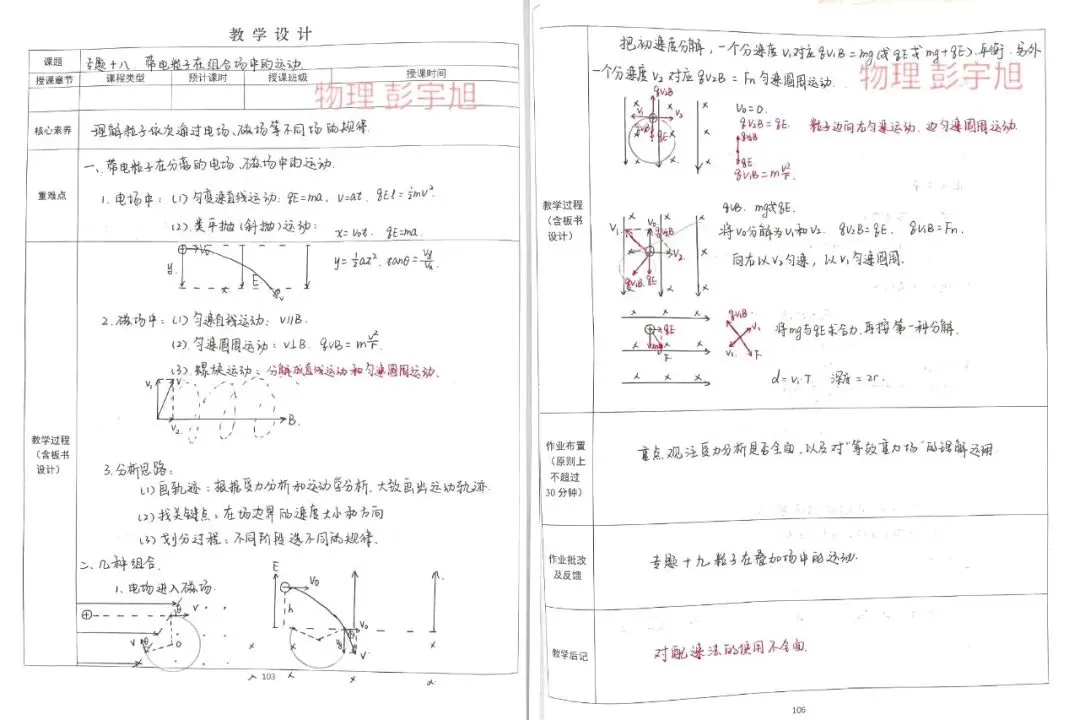 教学设计
课题
专题十八 带电粒子在组合场中的运动
授课章节 课程类型 预计课时 授课班级 授课时间
物理 彭宇旭
核心素养
理解粒子依次通过电场、磁场等不同场的规律
重难点
一、带电粒子在分离的电场、磁场中的运动.
1. 电场中: (1) 匀变速直线运动: qE=ma, v=at, qEl=½mv².
(2). 类平抛(斜抛)运动: x=v₀t, qE=ma.
y=½at², tanθ=vy/vx
y
v₀
x
E
v
教学过程
(含板书
设计)
2. 磁场中: (1) 匀速直线运动: v∥B.
(2). 匀速圆周运动: v⊥B. qvB=m v²/r.
(3). 螺旋运动: 分解成直线运动和匀速圆周运动.
V₁ V
V₂ B
3. 分析思路:
(1) 画轨迹: 根据受力分析和运动学分析, 大致画出运动轨迹.
(2) 找关键点: 在场边界的速度大小和方向
(3) 划分过程: 不同阶段选不同的规律.
二、几种组合.
1. 电场进入磁场.
E V₀
h
V₀
θ V
O
V
103
把初速度分解, 一个分速度V₁对应qV₁B=mg(或qE或mg+qE)平衡, 另外
一个分速度V₂对应qV₂B=Fn匀速圆周运动.
物理 彭宇旭
V₀=0.
qV₂B=qE. 粒子边向右匀速运动, 边匀速圆周运动.
qV₁B
qE
qV₁B=m v²/r.
教学过程
(含板书
设计)
qVB. mg或qE.
将V₀分解为V₁和V₂. qV₂B=qE. qV₁B=Fn.
向右以V₂匀速, 以V₁匀速圆周.
qV₁B qE
qV₁B
qE
mg F
将mg与qE求合力, 再按第一种分解.
d=V₁T 深度=2r.
作业布置
(原则上
不超过
30分钟)
重点观注受力分析是否全面, 以及对"等效重力场"的理解运用
作业批改
及反馈
专题十九 粒子在叠加场中的运动.
教学后记
对配速法的使用不全面.
106